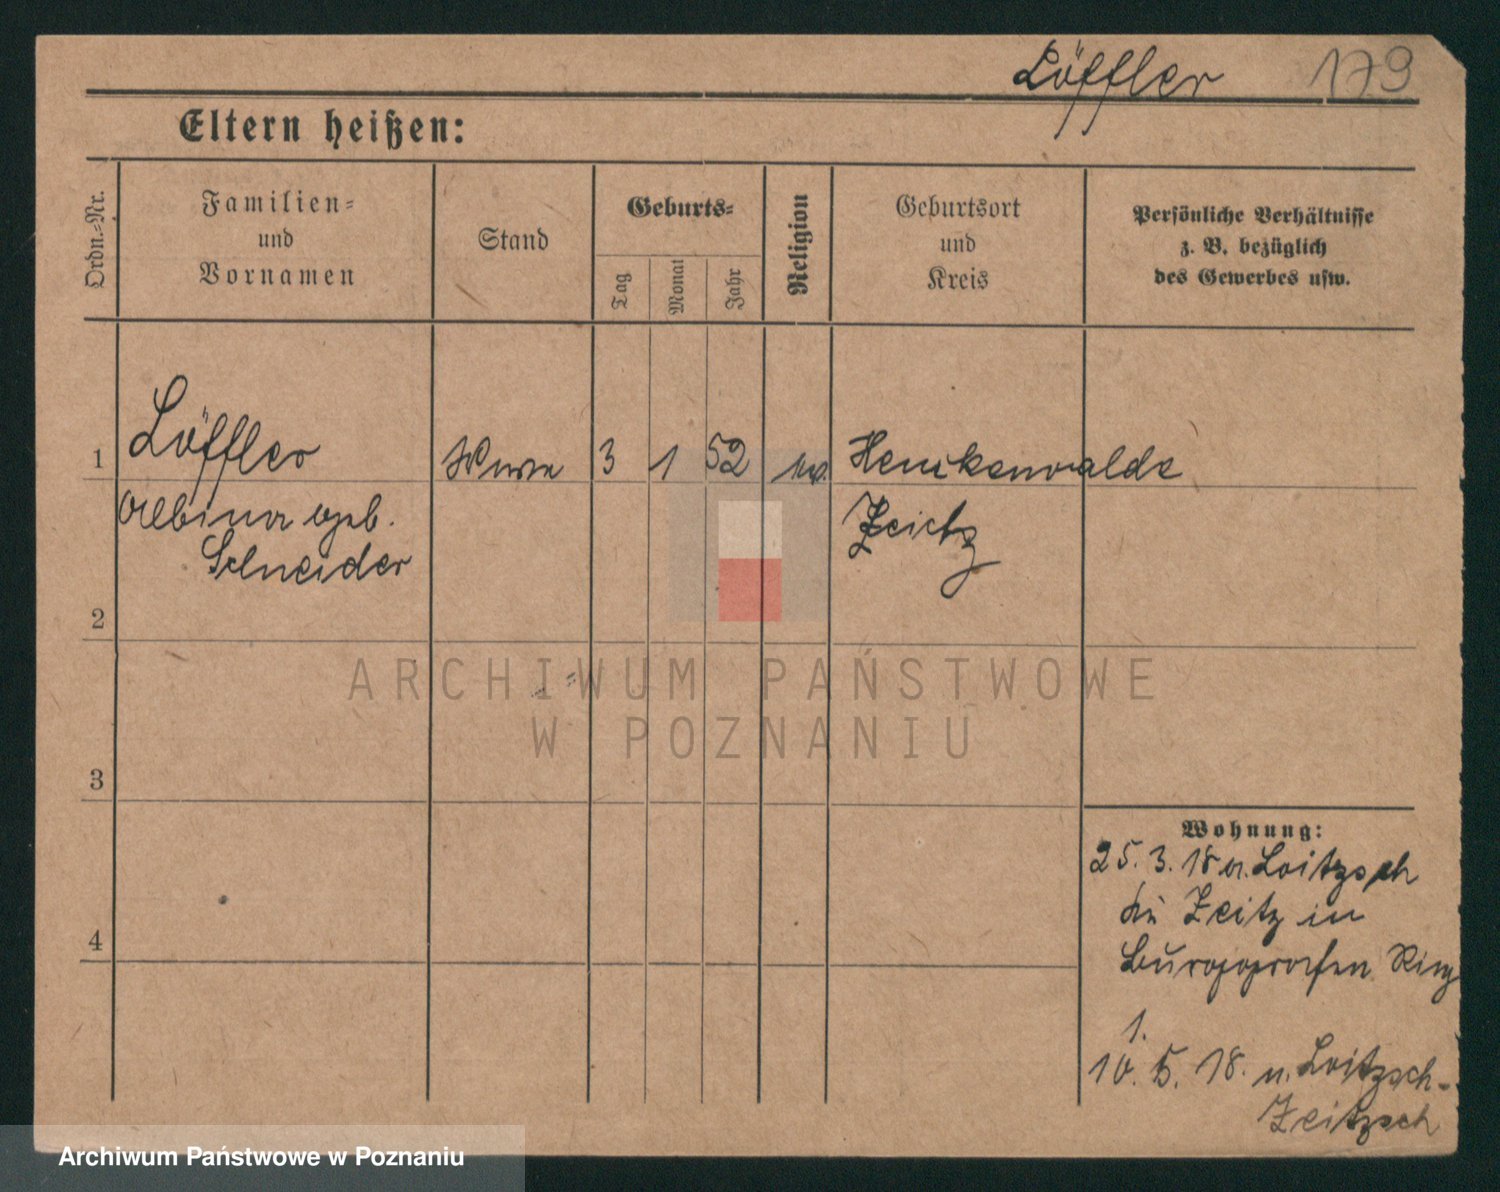 Löffler 179
Eltern heißen:
Ordn.-Nr.
Familien-
und
Vornamen
Stand
Geburts-
Tag
Monat
Jahr
Religion
Geburtsort
und
Kreis
Persönliche Verhältnisse
z. B. bezüglich
des Gewerbes usw.
1 Löffler 3 1 52 ev. Heuckenwalde
Albina geb. Zeitz
Schneider
2
ARCHIWUM PAŃSTWOWE
W POZNANIU
3
Wohnung:
25. 3. 18 a. Loitzsch
bei Zeitz in
Burggrafen Ring
4
1.
10. 5. 18. n. Loitzsch-
Zeitzsch
Archiwum Państwowe w Poznaniu